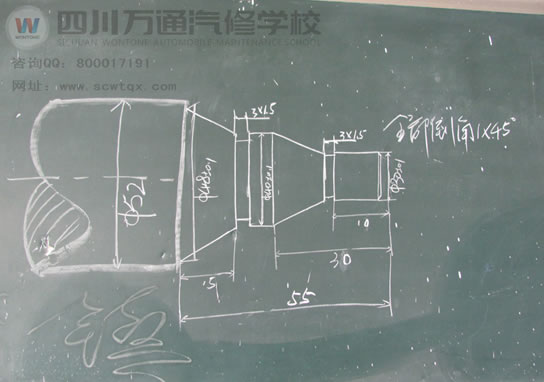 四川万通汽修学校
SICHUAN WONTONE AUTOMOBILE MAINTENANCE SCHOOL
WONTONE
咨询QQ：800017191
网址：www.scwtqx.com
3×1.5
3×1.5
全部倒角1×45°
Φ52
10
30
15
55